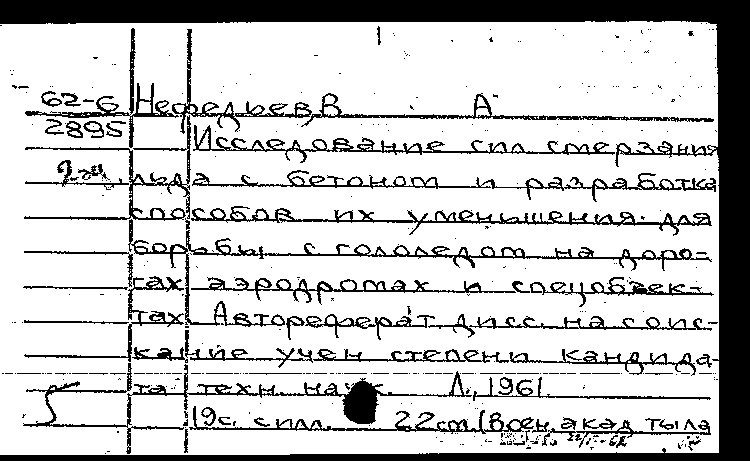 62-6 Нефедьев, В А
2895 Исследование сил смерзания
2 эк. льда с бетоном и разработка
способов их уменьшения для
борьбы с гололедом на доро-
гах аэродромах и спецобъек-
тах. Автореферат дисс. на соис-
кание учен степени кандида-
та техн. наук. Л., 1961.
19с. с илл. 22 см (Воен. акад тыла